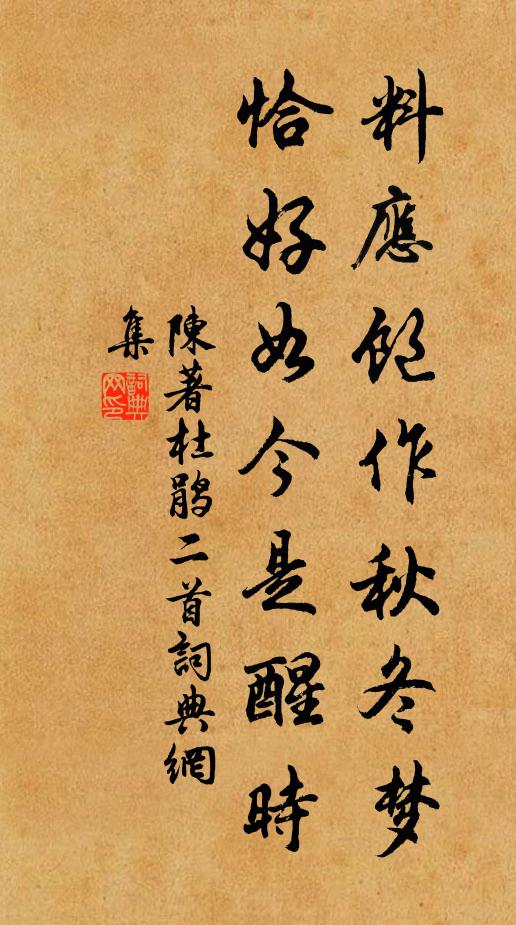 料應飽作秋冬梦
恰好如今是醒時
陳著杜鵑二首詞典網
集
詞典网印